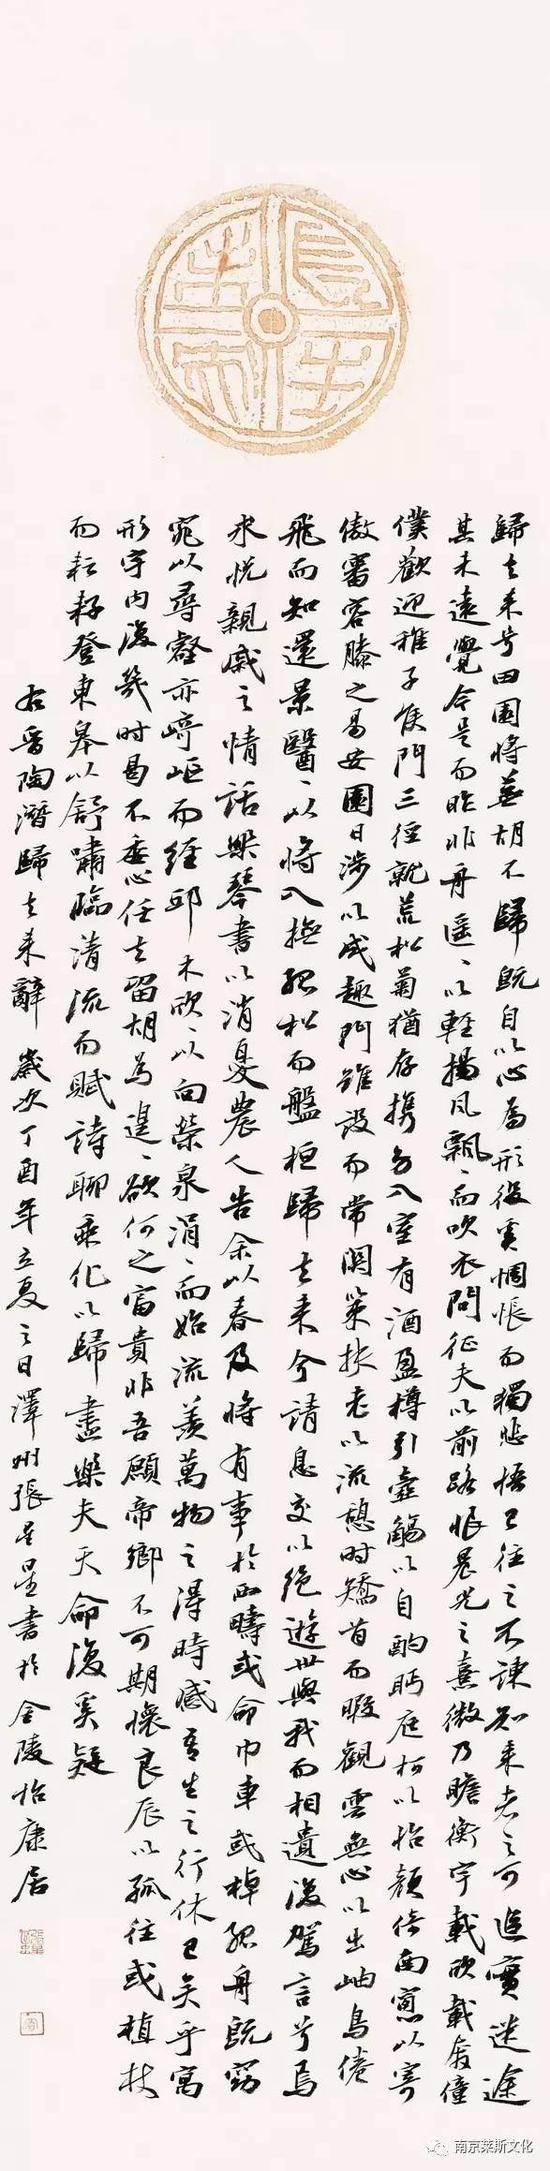 長生未央
歸去来兮田園將蕪胡不歸既自以心為形役奚惆悵而獨悲悟已往之不諫知来者之可追實迷途
其未遠覺今是而昨非舟遥々以輕揚風飄々而吹衣問征夫以前路恨晨光之熹微乃瞻衡宇載欣載奔僮
僕歡迎稚子候門三徑就荒松菊猶存携幼入室有酒盈樽引壺觴以自酌眄庭柯以怡顏倚南窗以寄
傲審容膝之易安園日涉以成趣門雖設而常關策扶老以流憩時矯首而遐觀雲無心以出岫鳥倦
飛而知還景翳々以將入撫孤松而盤桓歸去来兮請息交以絶遊世與我而相遺復駕言兮焉
求悦親戚之情話樂琴書以消憂農人告余以春及將有事於西疇或命巾車或棹孤舟既窈
窕以尋壑亦崎嶇而經邱木欣々以向榮泉涓々而始流羨萬物之得時感吾生之行休已矣乎寓
形宇内復幾時曷不委心任去留胡為遑々欲何之富貴非吾願帝鄉不可期懷良辰以孤往或植杖
而耘耔登東皋以舒嘯臨清流而賦詩聊乘化以歸盡樂夫天命復奚疑
右晉陶潛歸去来辭 歲次丁酉年立夏之日澤州張星星書於金陵怡康居
南京莱斯文化